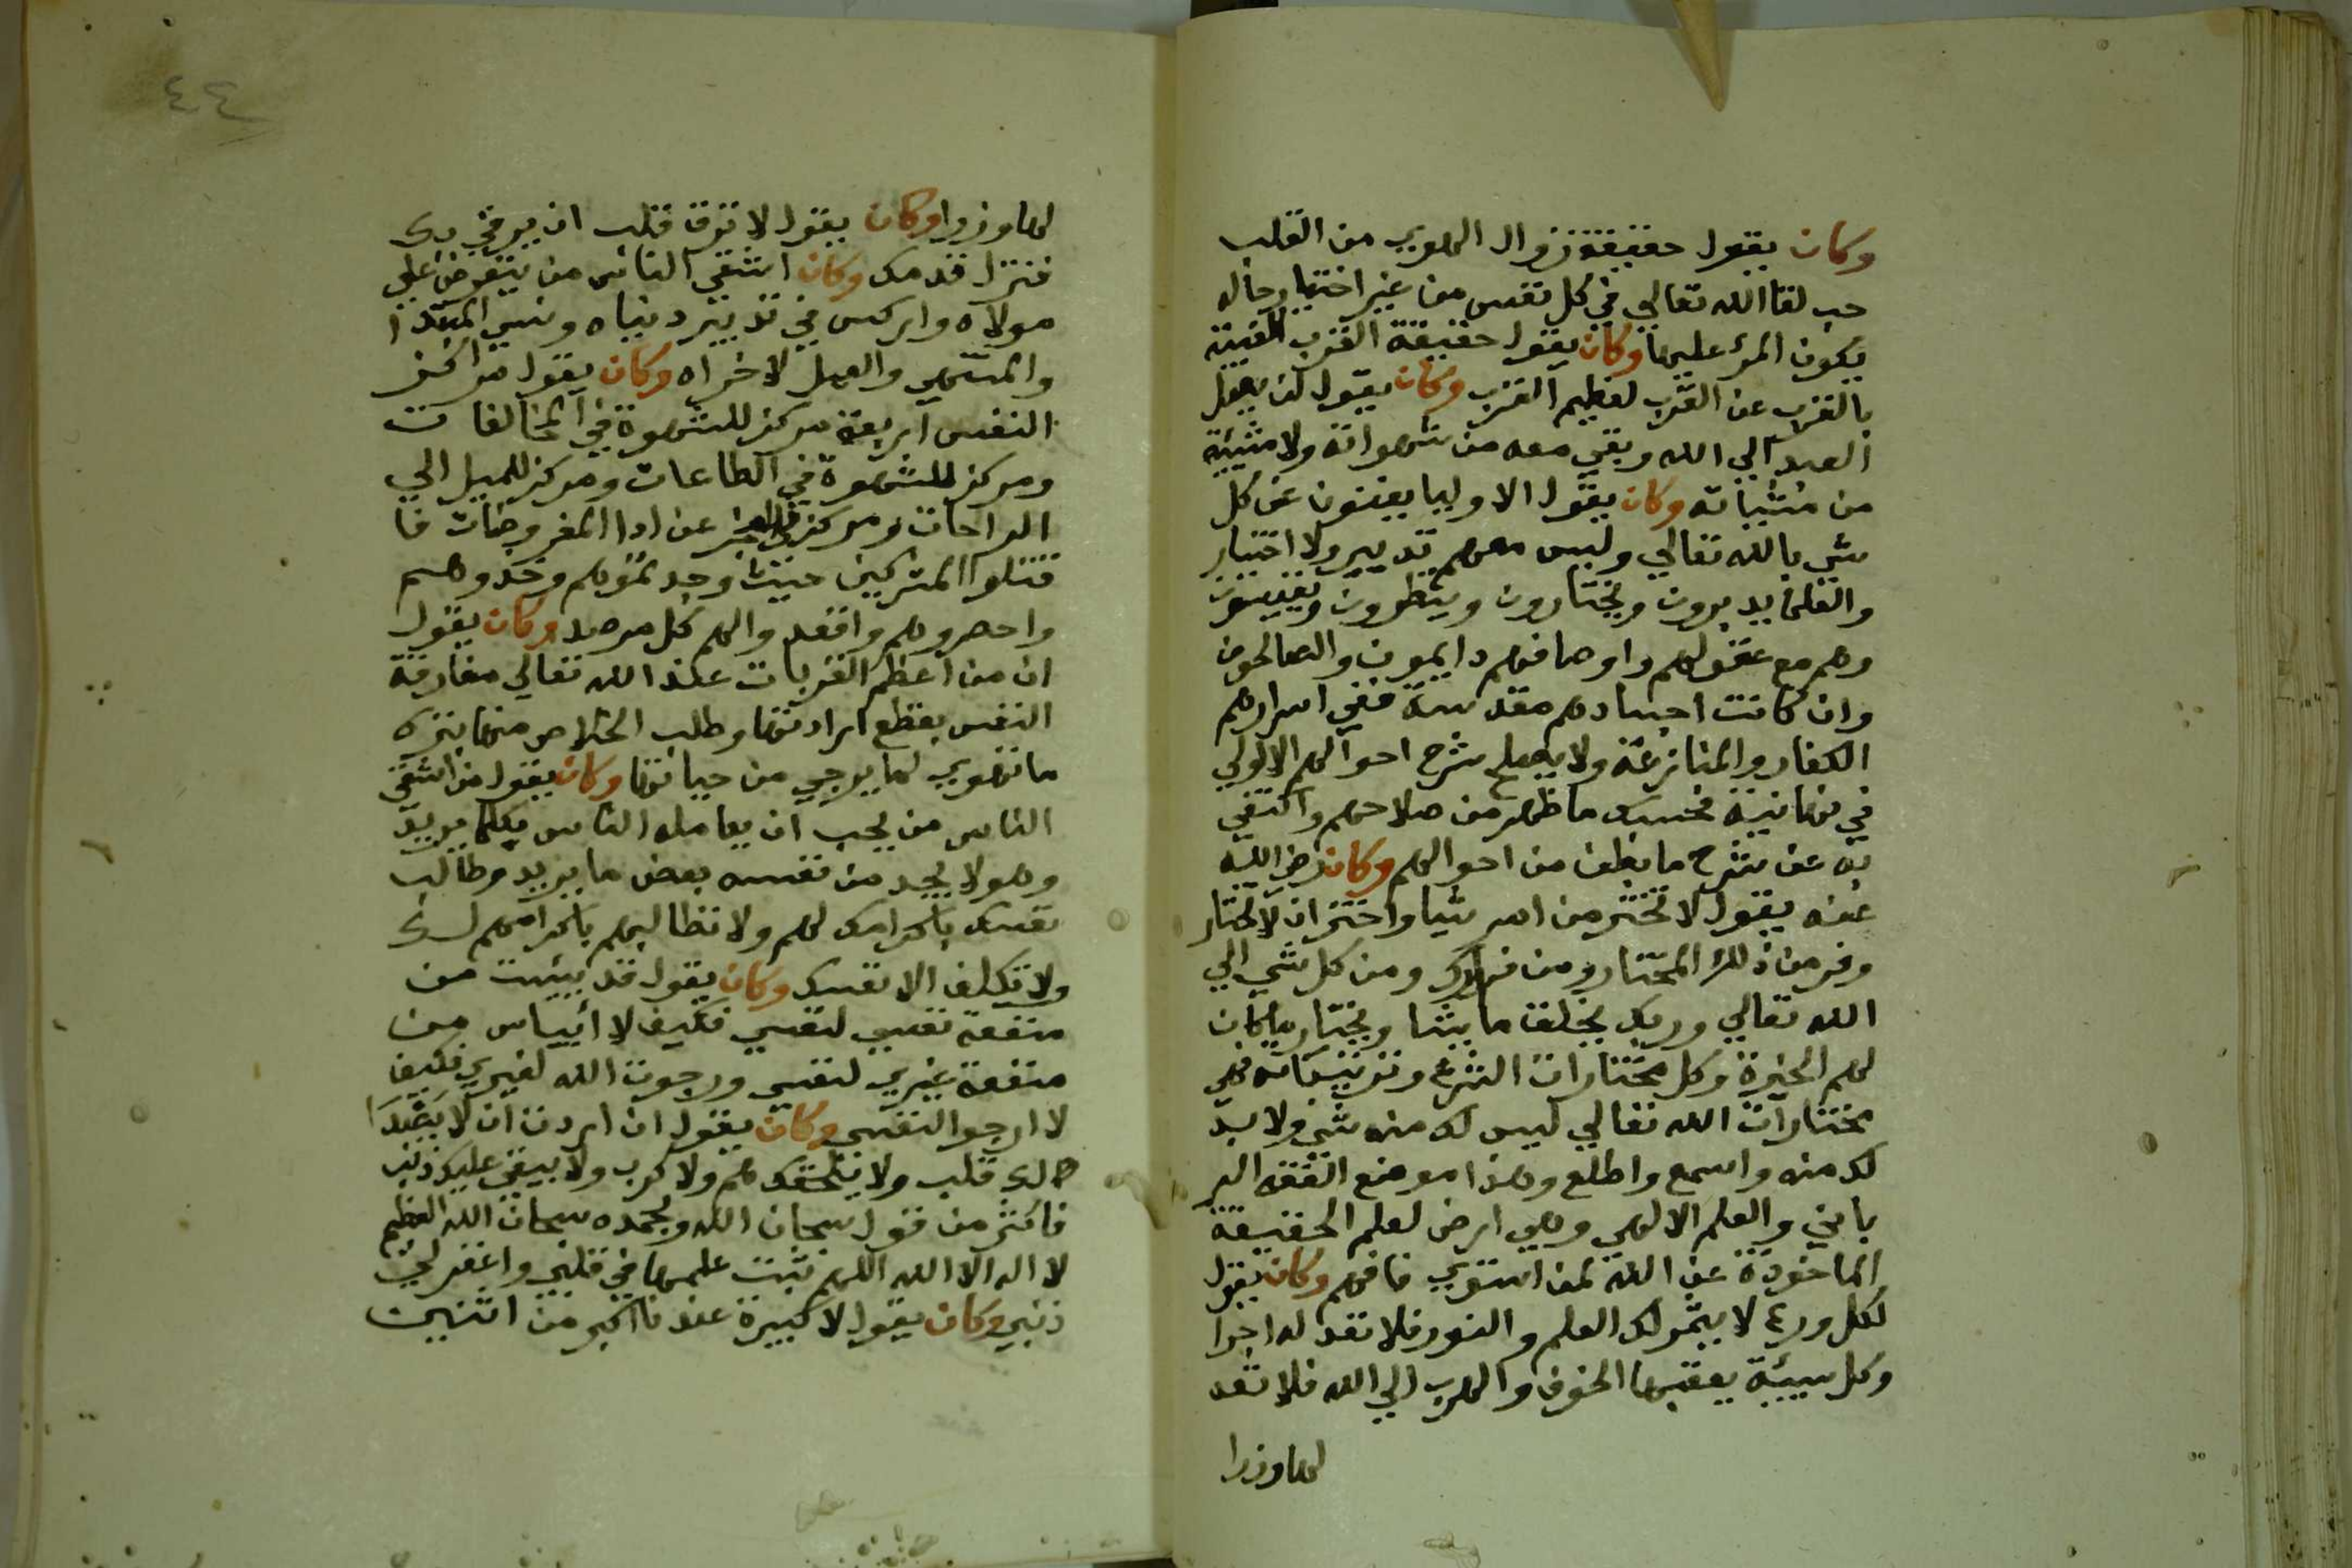 وكان يقول حقيقة زوال الهوي من القلب
حب لقا الله تعالي في كل نفس من غير اختيار حاله
يكون المرؤ عليها وكان يقول حقيقة القرب الغيبة
بالقرب عن القرب لعظيم القرب وكان يقول لن يصل
العبد الي الله وبقي معه من شهواته ولا مشيئة
من مشياته وكان يقول الاوليا يغنون عن كل
شي بالله تعالي وليس معهم تدبير ولا اختيار
والعلما يدبرون ويختارون وينظرون ويقيسون
وهم مع عقولهم واوصافهم دايمون والصالحون
وان كانت اجسادهم مقدسة ففي اسرارهم
الكفار والمنازعة ولا يصلح شرح احوالهم الا لولي
في نهايته فحسبك ما ظهر من صلاحهم واكتفي
به عن شرح ما بطن من احوالهم وكان رضي الله
عنه يقول لا تختر من امرك شيا واختر ان لا تختار
وفر من ذلك المختار ومن فرارك ومن كل شي الي
الله تعالي وربك يخلق ما يشا ويختار ما كان
لهم الخيرة وكل مختارات الشرع وترتيباته فهي
مختارات الله تعالي ليس لك منه شي ولا بد
لك منه واسمع واطلع وهذا موضع الفقه الر
باني والعلم الالهي وهي ارض لعلم الحقيقة
الماخوذة عن الله لمن استوي فافهم وكان يقول
لكل ورع لا يثمر لك العلم والنور فلا تعد له اجرا
وكل سيئة يعقبها الخوف والهرب الي الله فلا تعد
لها وزرا
٤٤
لها وزرا وكان يقول لا ترق قبل ان يرقي بك
فتزل قدمك وكان اشقي الناس من يتعرض علي
مولاه واركس في تدبير دنياه ونسي المبتدا
والمنتهي والعمل لاخراه وكان يقول مراكز
النفس اربعة مركز للشهوة في المخالفات
ومركز للشهوة في الطاعات ومركز للميل الي
الراحات ومركز في العجز عن ادا المفروضات فا
قتلوا المشركين حيث وجدتموهم وخذوهم
واحصروهم واقعدوالهم كل مرصد وكان يقول
ان من اعظم القربات عند الله تعالي مفارقة
النفس بقطع ارادتها وطلب الخلاص منها بترك
ما تهوي لما يرجي من حياتها وكان يقول من اشقي
الناس من يحب ان يعامله الناس بكلما يريد
وهو لا يجد من نفسه بعض ما يريد وطالب
نفسك باكرامك لهم ولا تطالبهم باكرامهم لك
ولا تكلف الا نفسك وكان يقول قد يئست من
منفعة نفسي لنفسي فكيف لا أئياس من
منفعة غيري لنفسي ورجوت الله لغيري فكيف
لا ارجو لنفسي وكان يقول ان اردت ان لا يصدا
لك قلب ولا يلحقك هم ولا كرب ولا يبقي عليك ذنب
فاكثر من قول سبحان الله وبحمده سبحان الله العظيم
لا اله الا الله اللهم ثبت علمها في قلبي واغفر لي
ذنبي وكان يقول لا كبيرة عندنا اكبر من اثنين